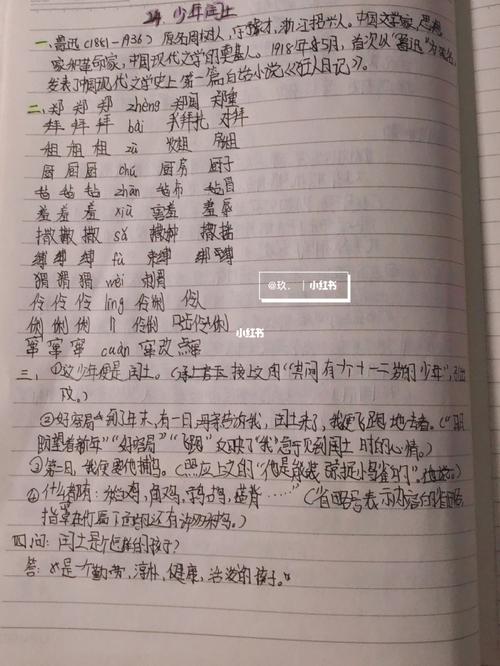 24. 少年闰土
一、鲁迅(1881-1936) 原名周樟人,字豫才,浙江绍兴人。中国文学家、思想
家和革命家,中国现代文学的奠基人。1918年5月,首次以"鲁迅"为笔名,
发表了中国现代文学史上第一篇白话小说《狂人日记》。
二、郑 郑 郑 zhèng 郑国 郑重
拜 拜 拜 bài 拜
祖 祖 祖 zǔ 祖
厨 厨 厨 chú 厨房 厨子
毡 毡 毡 zhān 毡布 毡帽
羞 羞 羞 xiū 害羞 羞辱
撒 撒 撒 sǎ 撒种 撒播
缚 缚 缚 fù 束缚 绑缚
猬 猬 猬 wèi 刺猬
伶 伶 伶 líng 伶俐 伶人
俐 俐 俐 lì 伶俐
窜 窜 窜 cuàn 窜改
三、①这少年便是闰土。( 接上文的"其间有一个十一二岁的少年",
②好容易到了年末,有一日,母亲告诉我,闰土来了,我便飞跑地去看。("
盼望着新年""好容易""飞跑"反映了"我"急于见到闰土时的心情。)
③第二日,我便要他捕鸟。(照应上文的"他是能装 捉小鸟雀的"。
④什么都有:稻鸡,角鸡,鹁鸪,蓝背……"(省略号表示内容的省略,
指 还有许多种鸟。)
四、问:闰土是个怎样的孩子?
答: 是一个勤劳,淳朴,健康,活泼的孩子。"
@玖. | 小红书
小红书